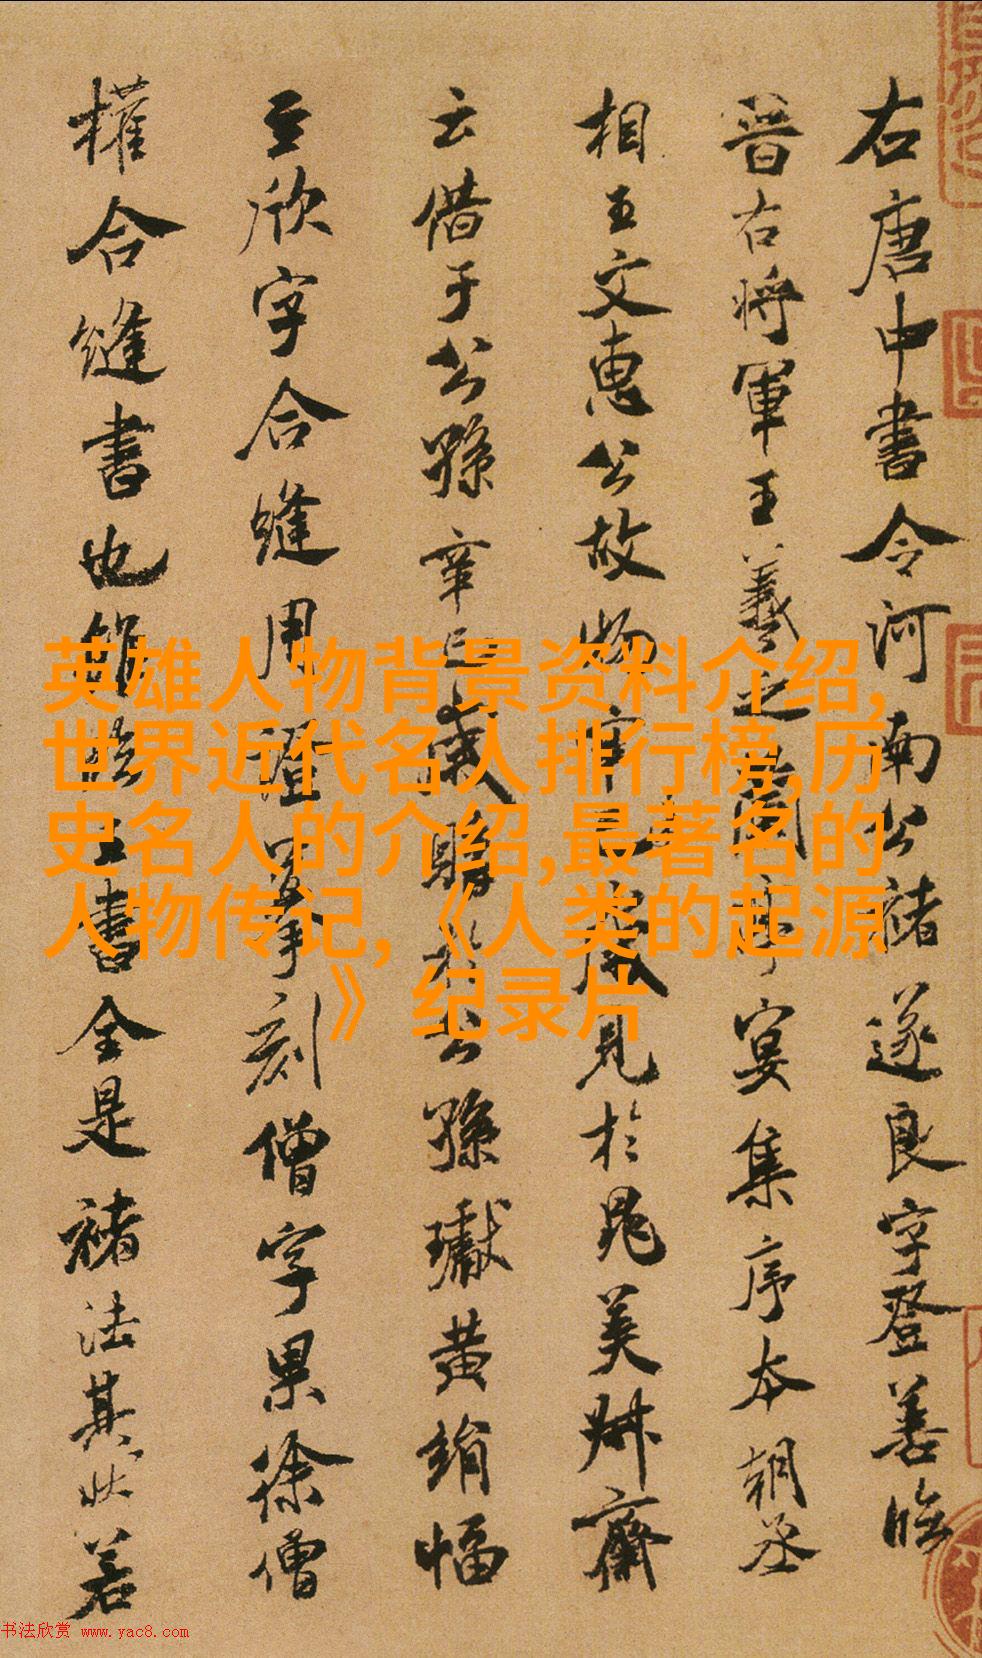 右唐中書令河南公褚遂良字登善臨
晉右將軍王羲之蘭亭宴集序本朝丞
相王文惠公故物庚午歲見於晁美叔齋
云借于公孫辛巳歲購於公孫瓛黃絹幅
至欣字合縫用證摹刻僧字果徐僧
權合縫書也雖臨王書全是褚法其狀若
英雄人物背景资料介绍,
世界近代名人排行榜,历
史名人的介绍,最著名的
人物传记,《人类的起源
》纪录片
书法欣赏 www.yac8.com